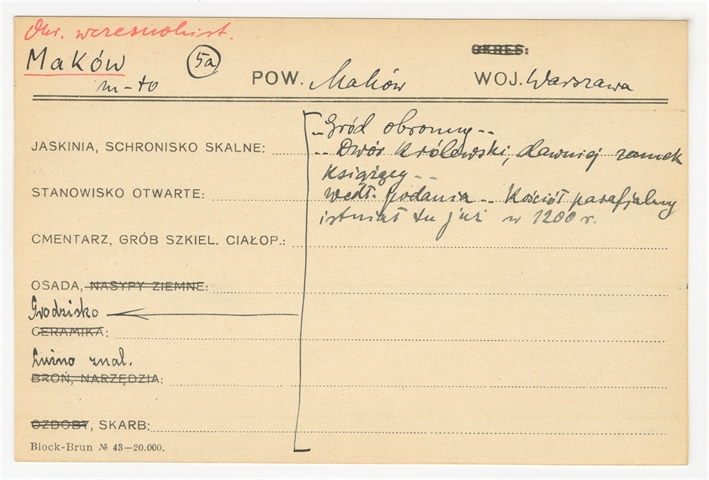 Okr. wczesnohist.
Maków
m-to
5a
OKRES:
POW. Maków
WOJ. Warszawa
„Gród obronny„
„Dwór Królewski, dawniej zamek
JASKINIA, SCHRONISKO SKALNE:
książęcy„
STANOWISKO OTWARTE:
wedł. podania „ Kościół parafjalny
istniał tu już w 1200 r.
CMENTARZ, GRÓB SZKIEL. CIAŁOP.:
OSADA, NASYPY ZIEMNE:
Grodzisko
CERAMIKA:
Luźno znal.
BROŃ, NARZĘDZIA:
OZDOBY, SKARB:
Block-Brun № 43—20.000.